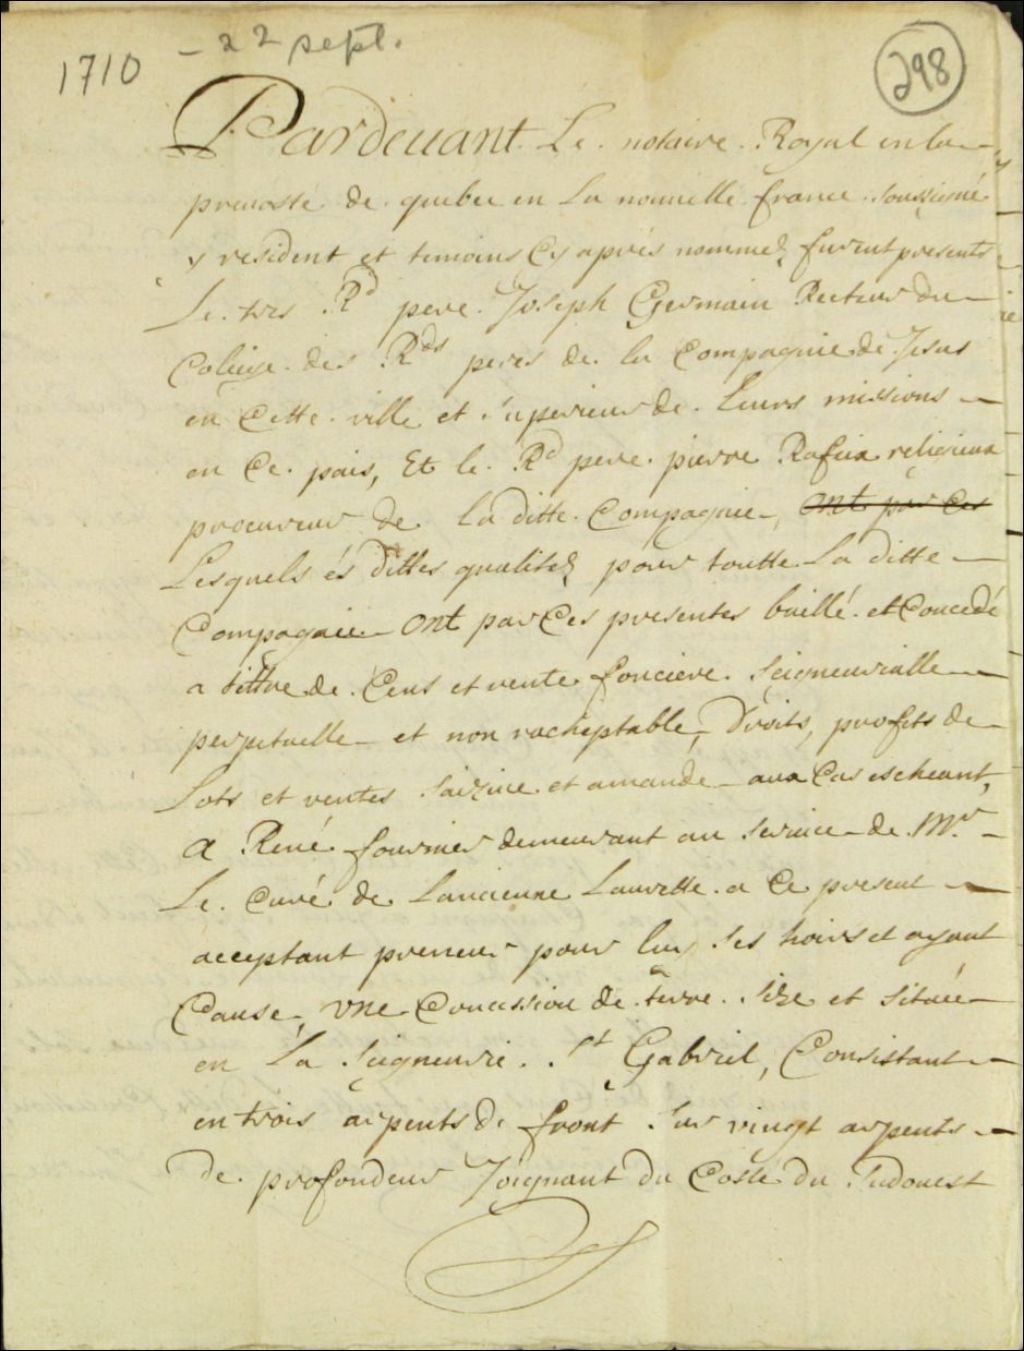 1710 - 22 sept.
298
Pardeuant Le notaire Royal en la
preuosté de quebec en La nouuelle france soussigné
y resident et temoins Cy aprés nommez furent presents
Le tres Rd pere Joseph Germain Recteur du
Colleige des Rds peres de la Compagnie de Jesus
en Cette ville et superieur de Leurs missions
en Ce païs, Et le Rd pere pierre Rafeix religieux
procureur de la ditte Compagnie, ont par Ces
Lesquels és dittes qualitez pour toutte La ditte
Compagnie ont par Ces presentes baillé et Concedé
a tittre de Cens et rente fonciere seigneurialle
perpetuelle et non racheptable, Droits, profits de
Lots et ventes saizine et amande aux Cas escheant,
A René fournier demeurant au seruice de Mr
Le Curé de Lancienne Laurette a Ce present
acceptant preneur pour luy ses hoirs et ayant
Cause, vne Concession de terre size et située
en La seigneurie St Gabriel, Consistant
en trois arpents de front sur vingt arpents
de profondeur Joignant du Costé du sudouest